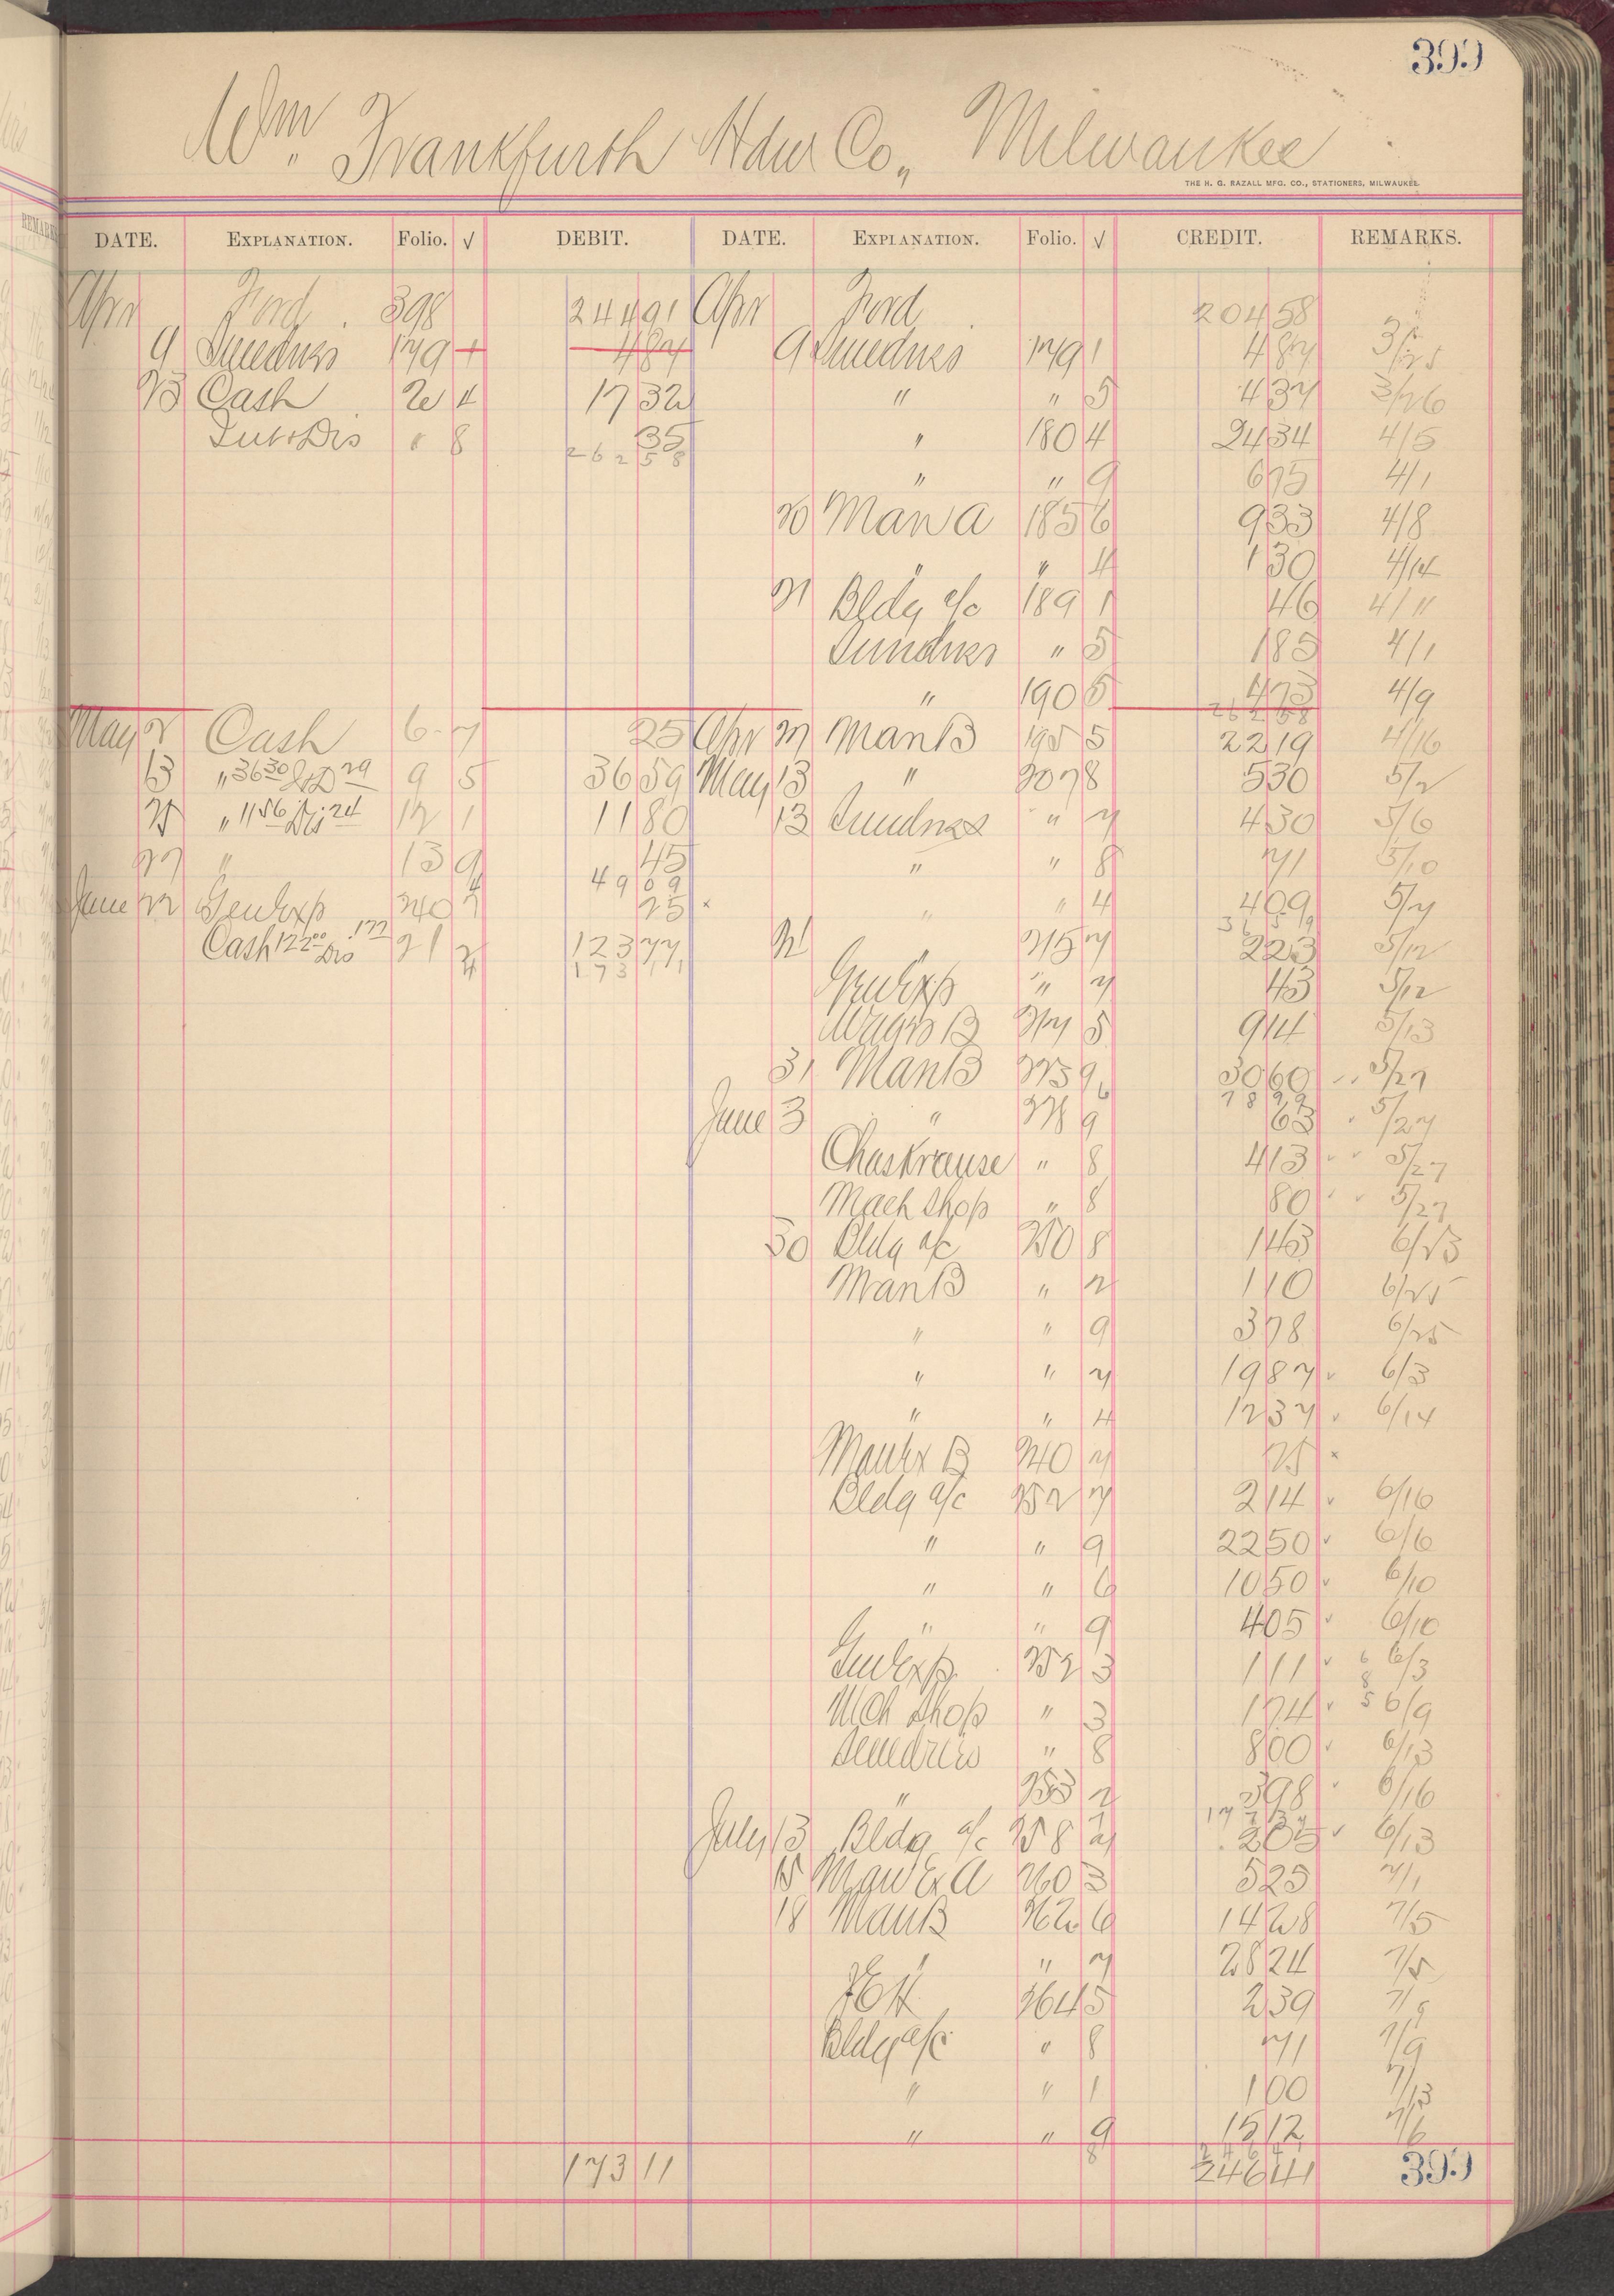 399
Wm. Frankfurth Hdw Co., Milwaukee
THE H. G. RAZALL MFG. CO., STATIONERS, MILWAUKEE.
DATE. EXPLANATION. Folio. √ DEBIT. DATE. EXPLANATION. Folio. √ CREDIT. REMARKS.
Apr Ford 398 244 91 Apr Ford 204 58
9 Sundries 179 1 4 87 9 Sundries 179 1 4 87 3/25
23 Cash 2 4 17 32 " " 5 4 37 3/26
Int & Dis " 8 35 " 180 4 24 34 4/5
262 58
" " 9 6 75 4/1
20 Man A 185 6 9 33 4/8
" " 4 1 30 4/14
21 Bldg a/c 189 1 46 4/11
Sundries " 5 1 85 4/1
" 190 5 4 73 4/9
262 58
May 2 Cash 6 7 25 Apr 27 Man B 195 5 22 19 4/16
13 " 36 30 I&D 29 9 5 36 59 May 13 " 207 8 5 30 5/2
25 " 11 56 Dis 24 12 1 11 80 13 Sundries " 7 4 30 5/6
27 " 13 9 45 " " 8 71 5/10
49 09
June 22 Gen Exp 240 7 25 " " 4 4 09 5/7
36 59
Cash 122 00 Dis 1 77 21 2 123 77 21 " 215 7 2 23 5/12
173 11
Gen Exp " 7 43 5/12
Wagon B 217 5 9 14 5/13
31 Man B 225 9 30 60 5/27
78 99
June 3 " 228 9 63 5/27
Chas Krause " 8 4 13 5/27
Mach Shop " 8 80 5/27
30 Bldg a/c 250 8 1 43 6/23
Man B " 2 1 10 6/25
" " 9 3 78 6/25
" " 7 19 87 6/3
" " 4 12 37 6/14
Man Ex B 240 7 25
Bldg a/c 252 7 2 14 6/16
" " 9 22 50 6/6
" " 6 10 50 6/10
" " 9 4 05 6/10
Gen Exp. 252 3 1 11 6/3
Mch Shop " 3 1 74 6/9
Sundries " 8 8 00 6/13
" 253 2 3 98 6/16
July 13 Bldg a/c 258 7 2 05 6/13
15 Man Ex A 260 3 5 25 7/1
18 Man B 262 6 14 28 7/5
" " 7 28 24 7/5
264 5 2 39
Bldg a/c " 8 71 7/9
" " 1 1 00 7/13
" " 9 15 12 7/6
173 11 246 41 399